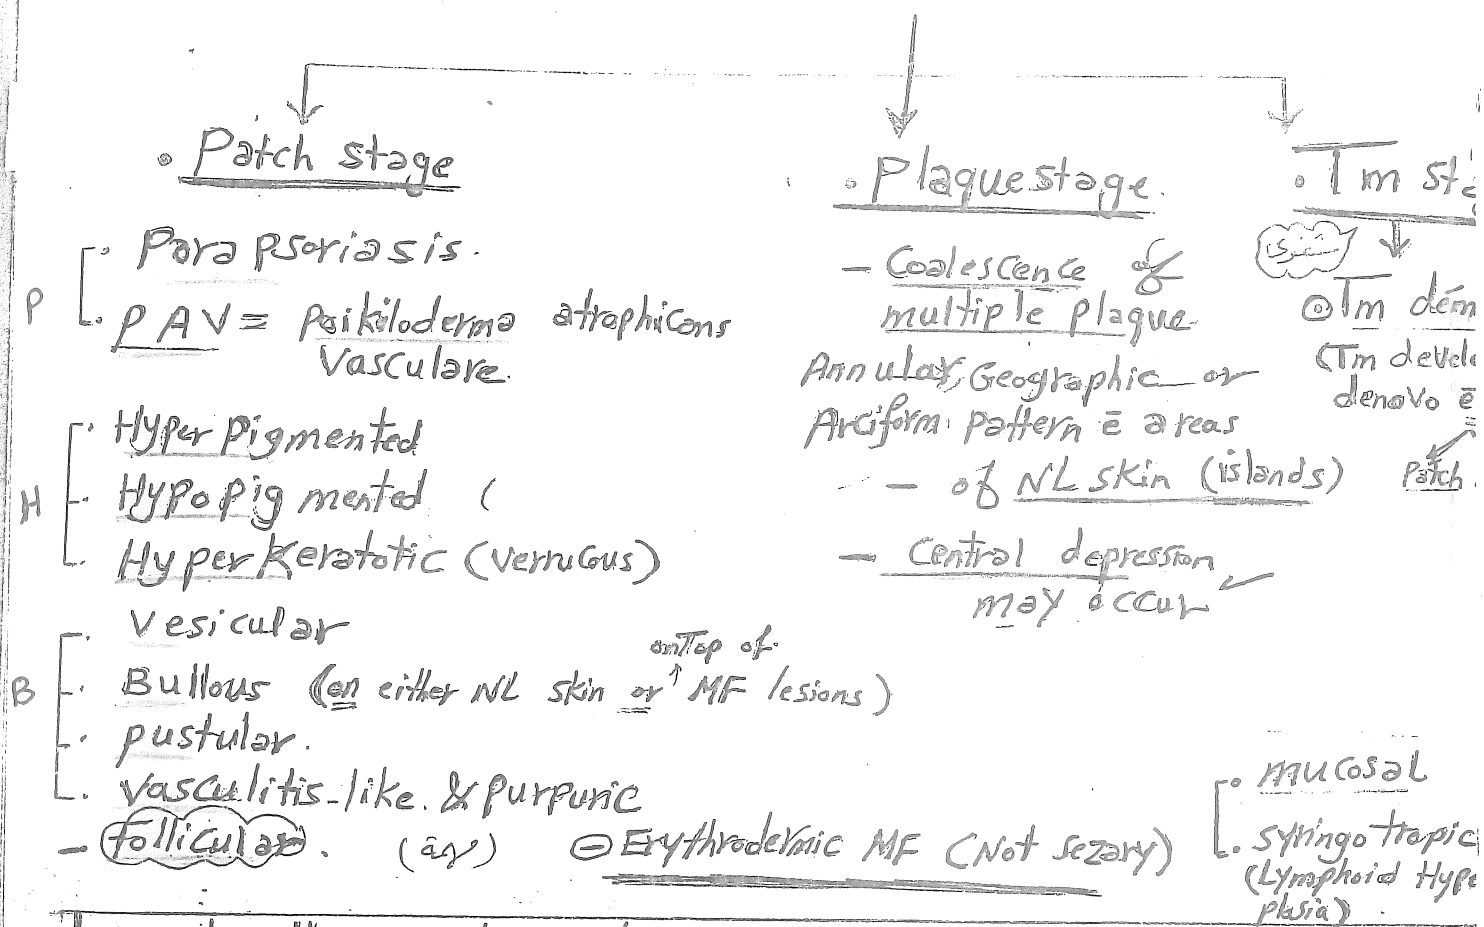 . Patch stage
. Para psoriasis.
P
. PAV = Poikiloderma atrophicans
Vasculare.
. Hyper pigmented
H
. Hypopigmented (
. Hyper Keratotic (verrucous)
. Vesicular
B
. Bullous (on either NL skin or ↑ MF lesions)
on Top of
. pustular.
. vasculitis-like. & purpuric
- Follicular.
⊖ Erythrodermic MF (Not sezary)
. Plaque stage.
- Coalescence of
multiple plaque
Annular, Geographic or
Arciform pattern ē areas
- of NL skin (islands)
- Central depression
may occur
. Tm sta
⊙ Tm dém
(Tm devel
denovo ē
Patch.
. mucosal
. syringotropic
(Lymphoid Hype
plasia)